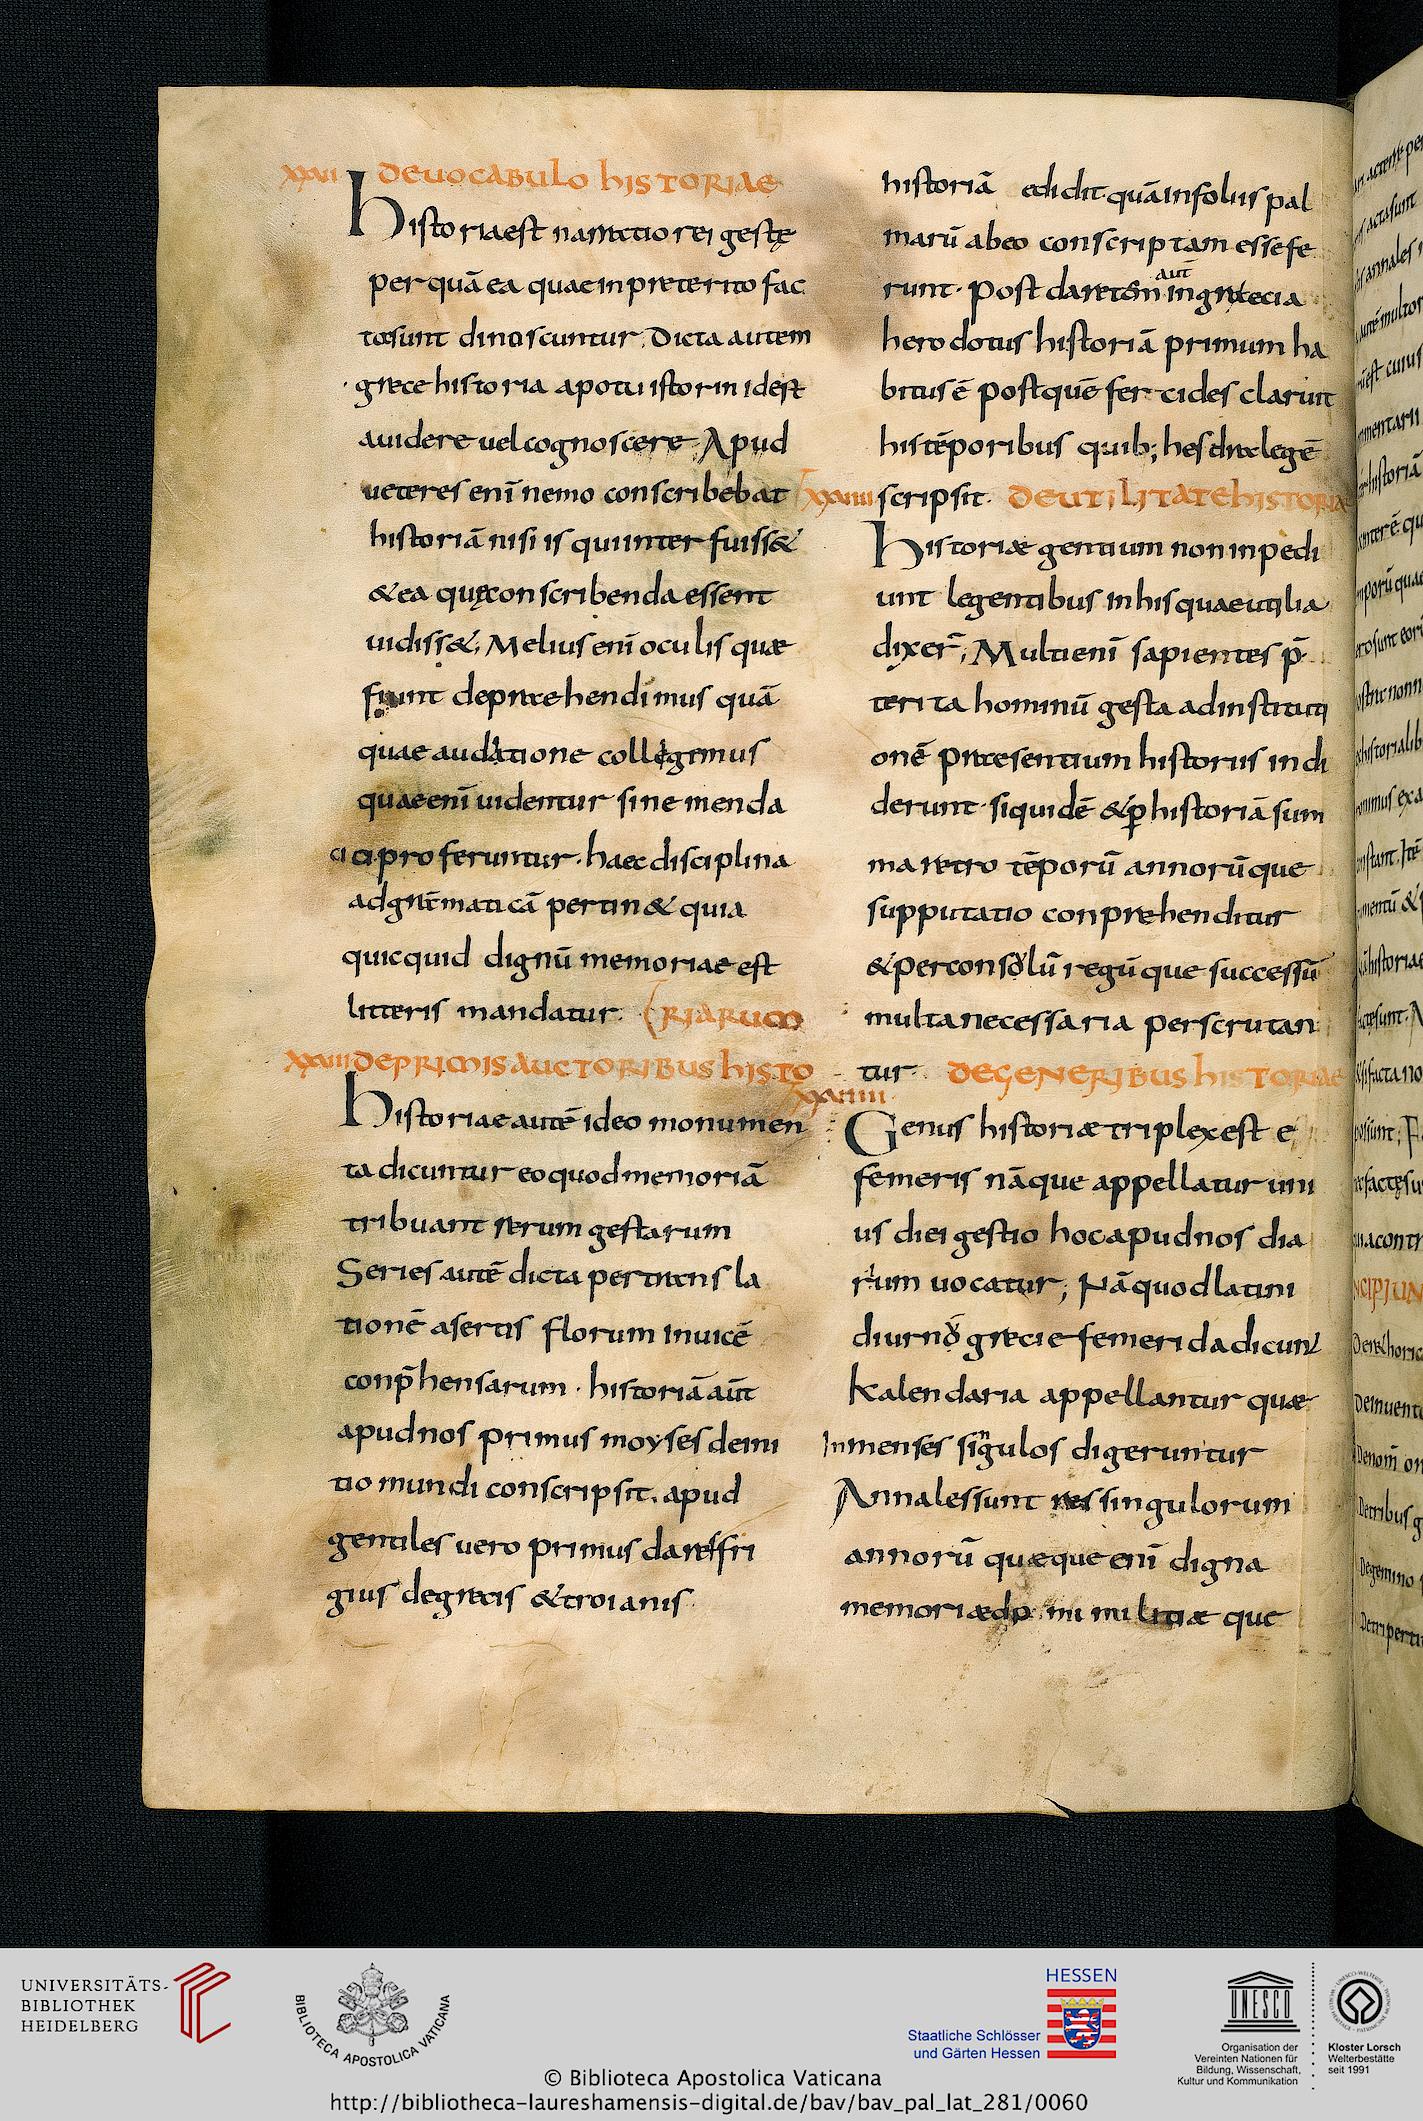 xxvi DEVOCABULO hISTORIAE
historia est narratio rei gestę
per quā ea quae in preterito fac
ta sunt dinoscuntur. Dicta autem
grece historia apotu istorin id est
auidere uel cognoscere. Apud
ueteres enī nemo conscribebat
historiā nisi is qui inter fuiss&
& ea quęconscribenda essent
uidiss&; Melius enī oculis quæ
fiunt deprehendimus quā
quae auditione colligimus
quae enī uidentur sine menda
cio proferuntur. haec disciplina
ad grāmaticā pertin& quia
quicquid dignū memoriae est
litteris mandatur. (RIARUM
xxvii DEPRIMIS AUCTORIBUS hISTO
historiae autē ideo monumen
ta dicuntur eo quod memoriā
tribuant rerum gestarum
Series autē dicta per trans la
tionē asertis florum inuicē
conp̄hensarum. historiā aūt
apud nos primus moyses deini
tio mundi conscripsit. apud
gentiles uero primus dares fri
gius degrecis & troianis
historiā edidit quā in foliis pal
marū abeo conscriptam esse fe
runt. post daretem aūt in grecia
herodotus historiā primum ha
bitus ē postquē fer cides claruit
his tēporibus quib; hesdras legē
xxviii scripsit. DEUTILITATE hISTORIAE
historiæ gentium non inpedi
unt legentibus in his quae utilia
dixer̄; Multi enī sapientes p̄
terita hominū gesta ad institūti
onē praesentium historiis indi
derunt. siquidē & ꝑ historiā sum
ma retro tēporū annorūque
supputatio conprehenditur
& per consolū regūque successū
multa necessaria perscrutan
tur. DEGENERIBUS hISTORIAE
xxviiii
Genus historiæ triplex est e
femeris nāque appellatur uni
us diei gestio hoc apud nos dia
rium uocatur; Nā quod latini
diurnū greci efemerida dicunt
Kalendaria appellantur quæ
In menses singulos digeruntur
Annales sunt res singulorum
annorū quæque enī digna
memoriæ do mi militiæ que
UNIVERSITÄTS-
BIBLIOTHEK
HEIDELBERG
BIBLIOTECA APOSTOLICA VATICANA
HESSEN
Staatliche Schlösser
und Gärten Hessen
UNESCO
Organisation der
Vereinten Nationen für
Bildung, Wissenschaft,
Kultur und Kommunikation
Kloster Lorsch
Welterbestätte
seit 1991
© Biblioteca Apostolica Vaticana
http://bibliotheca-laureshamensis-digital.de/bav/bav_pal_lat_281/0060